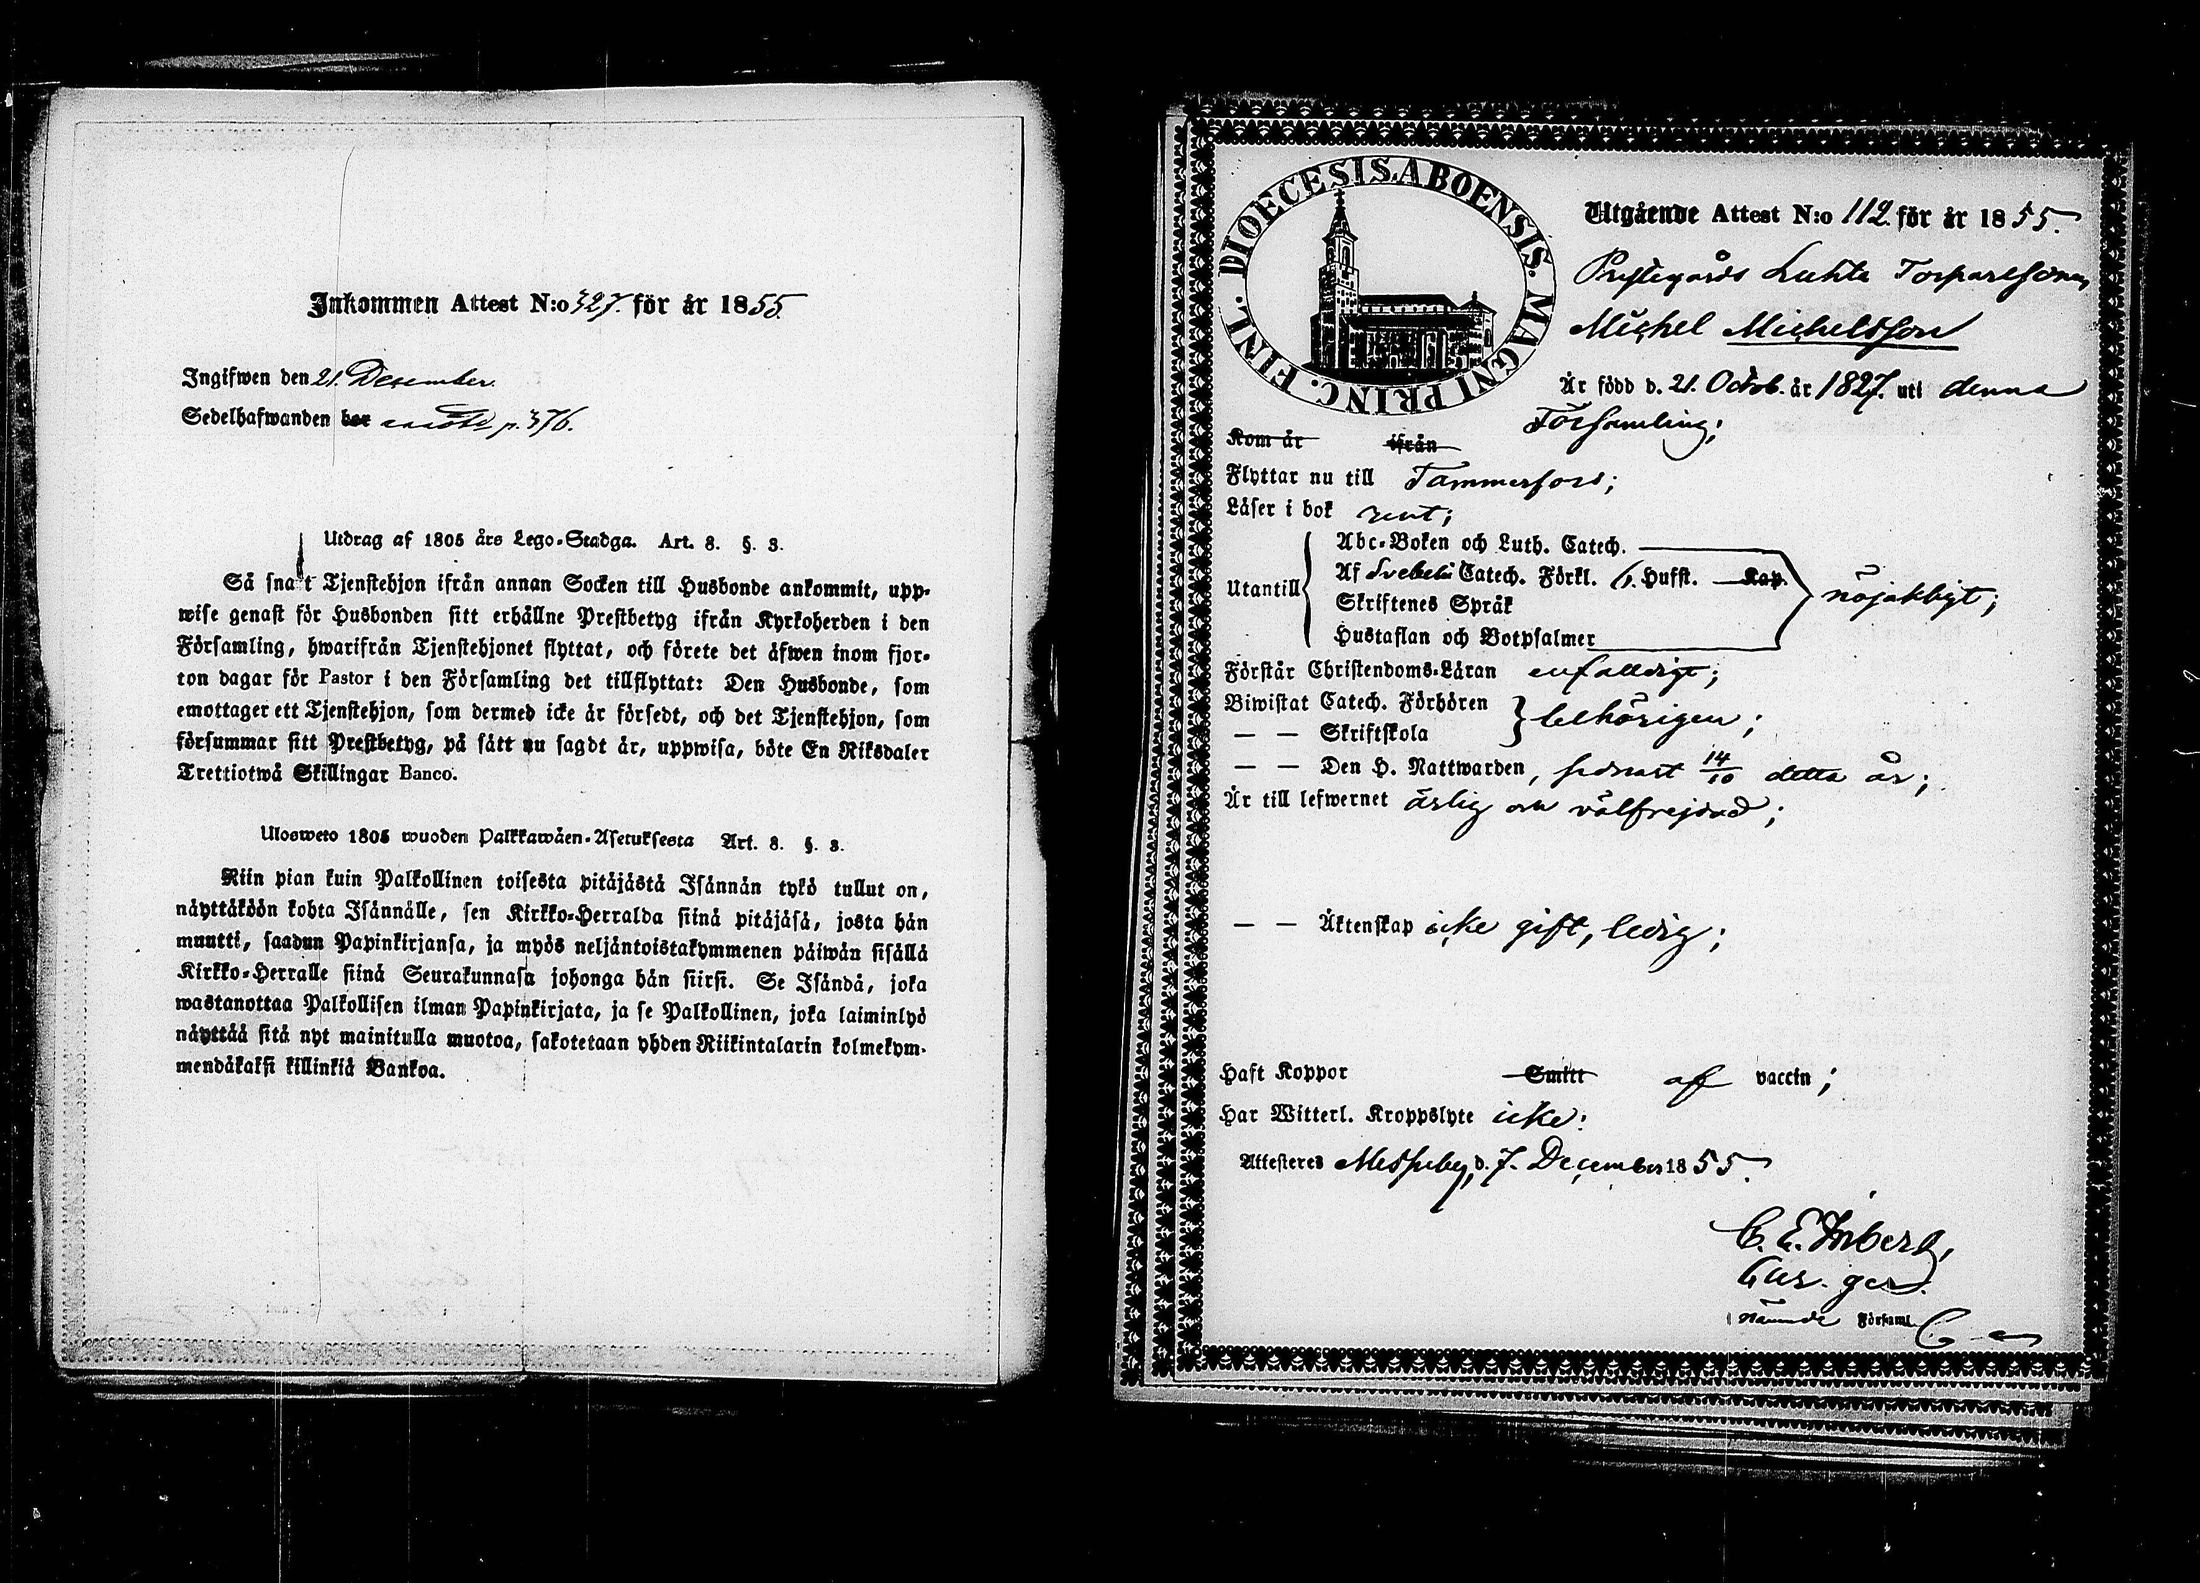 Inkommen Attest N:o 327. för år 1855.
Ingifwen den 21. December
Sedelhafwanden bor p. 376.
Utdrag af 1805 års Lego-Stadga. Art. 8. §. 3.
Så sna't Tjenstehjon ifrån annan Socken till Husbonde ankommit, upp-
wise genast för Husbonden sitt erhållne Prestbetyg ifrån Kyrkoherden i den
Församling, hwarifrån Tjenstehjonet flyttat, och förete det äfwen inom fjor-
ton dagar för Pastor i den Församling det tillflyttat: Den Husbonde, som
emottager ett Tjenstehjon, som dermed icke är försedt, och det Tjenstehjon, som
försummar sitt Prestbetyg, på sätt nu sagdt är, uppwisa, böte En Riksdaler
Trettiotwå Skillingar Banco.
Ulosweto 1805 wuoden Palkkawäen-Asetuksesta Art. 8. §. 3.
Niin pian kuin Palkollinen toisesta pitäjästä Isännän tykö tullut on,
näyttäköön kohta Isännälle, sen Kirkko-Herralda siinä pitäjäsä, josta hän
muutti, saadun Papinkirjansa, ja myös neljäntoistakymmenen päiwän sisällä
Kirkko-Herralle siinä Seurakunnasa johonga hän siirsi. Se Isändä, joka
wastanottaa Palkollisen ilman Papinkirjata, ja se Palkollinen, joka laiminlyö
näyttää sitä nyt mainitulla muotoa, sakotetaan yhden Riikintalarin kolmekym-
mendäkaksi killinkiä Bankoa.
DIOECESIS. ABOENSIS. MAGNI PRINC. FINL.
Utgående Attest N:o 112. för år 1855.
Prestegårds Luhta Torparesonen
Michel Michelsson
Är född d. 21. Octob. år 1827. uti denna
Församling;
Kom år ifrån
Flyttar nu till Tammerfors;
Läser i bok rent;
Abc-Boken och Luth. Catech.
Utantill Af Svebelii Catech. Förkl. 6. Hufst. Kap. nöjaktigt;
Skriftenes Språk
Hustaflan och Botpsalmer
Förstår Christendoms-Läran enfalldigt;
Biwistat Catech. Förhören behörigen;
— — Skriftskola
— — Den H. Nattwarden, sednast 14/10 detta år;
Är till lefwernet ärlig och välfrejdad;
— — Äktenskap icke gift, ledig;
Haft Koppor Smitt af vaccin;
Har Witterl. Kroppslyte icke:
Attesteres Messuby, d. 7. December 1855.
C. E. Inberg,
nämnde Församl.